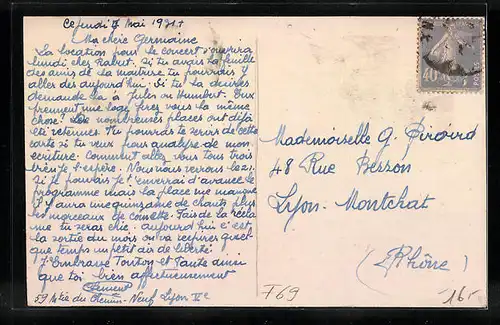 Ce jeudi 7 Mai 1931
Ma chère Germaine
La location pour le concert s'ouvrira
lundi chez Rabut. Si tu avais la feuille
des amis de la musique tu pourrais y
aller dès aujourd'hui. Si tu la désires
demande la à Jules ou Humbert. Eux
prennent une loge ferez vous la même
chose? De nombreuses places ont déjà
été retenues. Tu pourras te servir de cette
carte si tu veux pour analyse de mon
écriture. Comment allez vous tous trois
bien je l'espère. Nous nous verrons le 21.
Si je pouvais je t'enverrai d'avance le
programme mais la place me manque
il y aura une quinzaine de chants plus
les morceaux de cornette. Fais de la récla
me tu seras chic. Aujourd'hui c'est
la sortie du mois on va respirer quel-
que temps un petit air de liberté.
J'embrasse Tonton et Tante ainsi
que toi bien affectueusement
Clément
59 Mtée du Chemin-Neuf Lyon Ve
40
Mademoiselle G. Piroird
48 Rue Besson
Lyon-Montchat
(Rhône)
F69
16.-